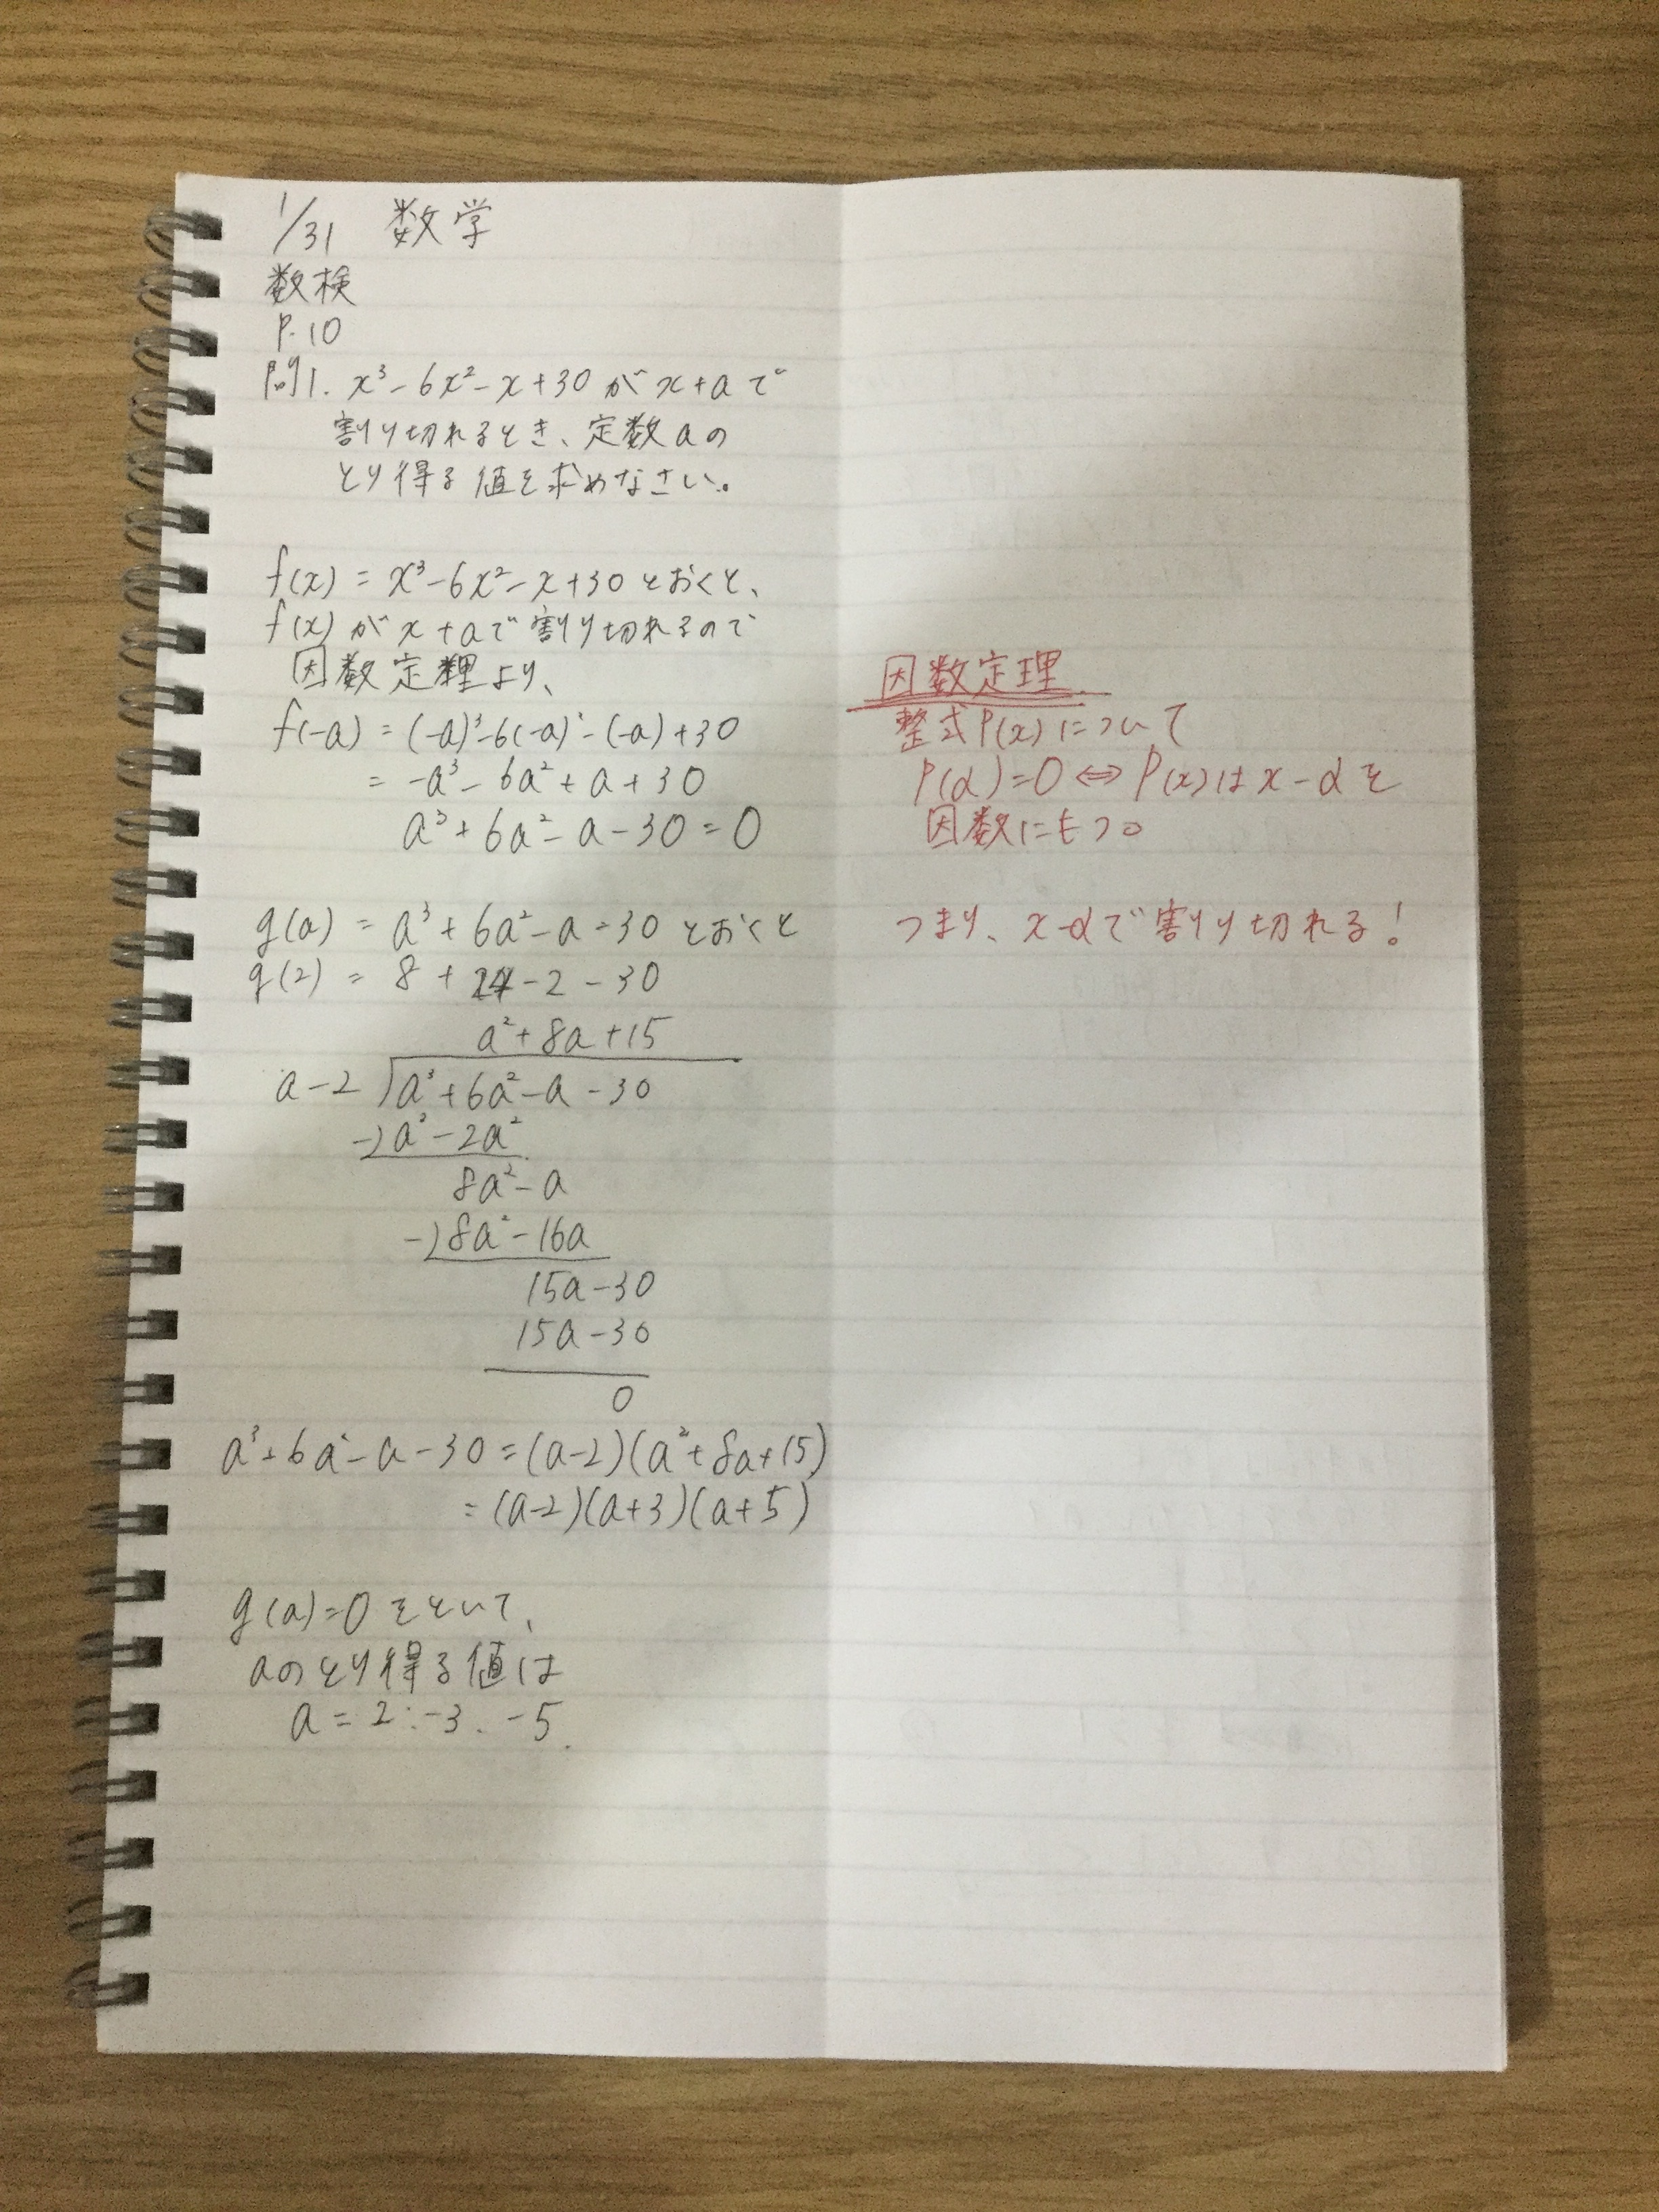 1/31 数学
数検
P.10
問1. x³-6x²-x+30がx+aで
割り切れるとき、定数aの
とり得る値を求めなさい。
f(x)=x³-6x²-x+30とおくと、
f(x)がx+aで割り切れるので
因数定理より、
f(-a)=(-a)³-6(-a)²-(-a)+30
=-a³-6a²+a+30
a³+6a²-a-30=0
g(a)=a³+6a²-a-30とおくと
g(2)=8+24-2-30
a²+8a+15
a-2)a³+6a²-a-30
-)a³-2a²
8a²-a
-)8a²-16a
15a-30
15a-30
0
a³+6a²-a-30=(a-2)(a²+8a+15)
=(a-2)(a+3)(a+5)
g(a)=0をといて、
aのとり得る値は
a=2、-3、-5.
因数定理
整式P(x)について
P(α)=0⇔P(x)はx-αを
因数にもつ。
つまり、x-αで割り切れる!